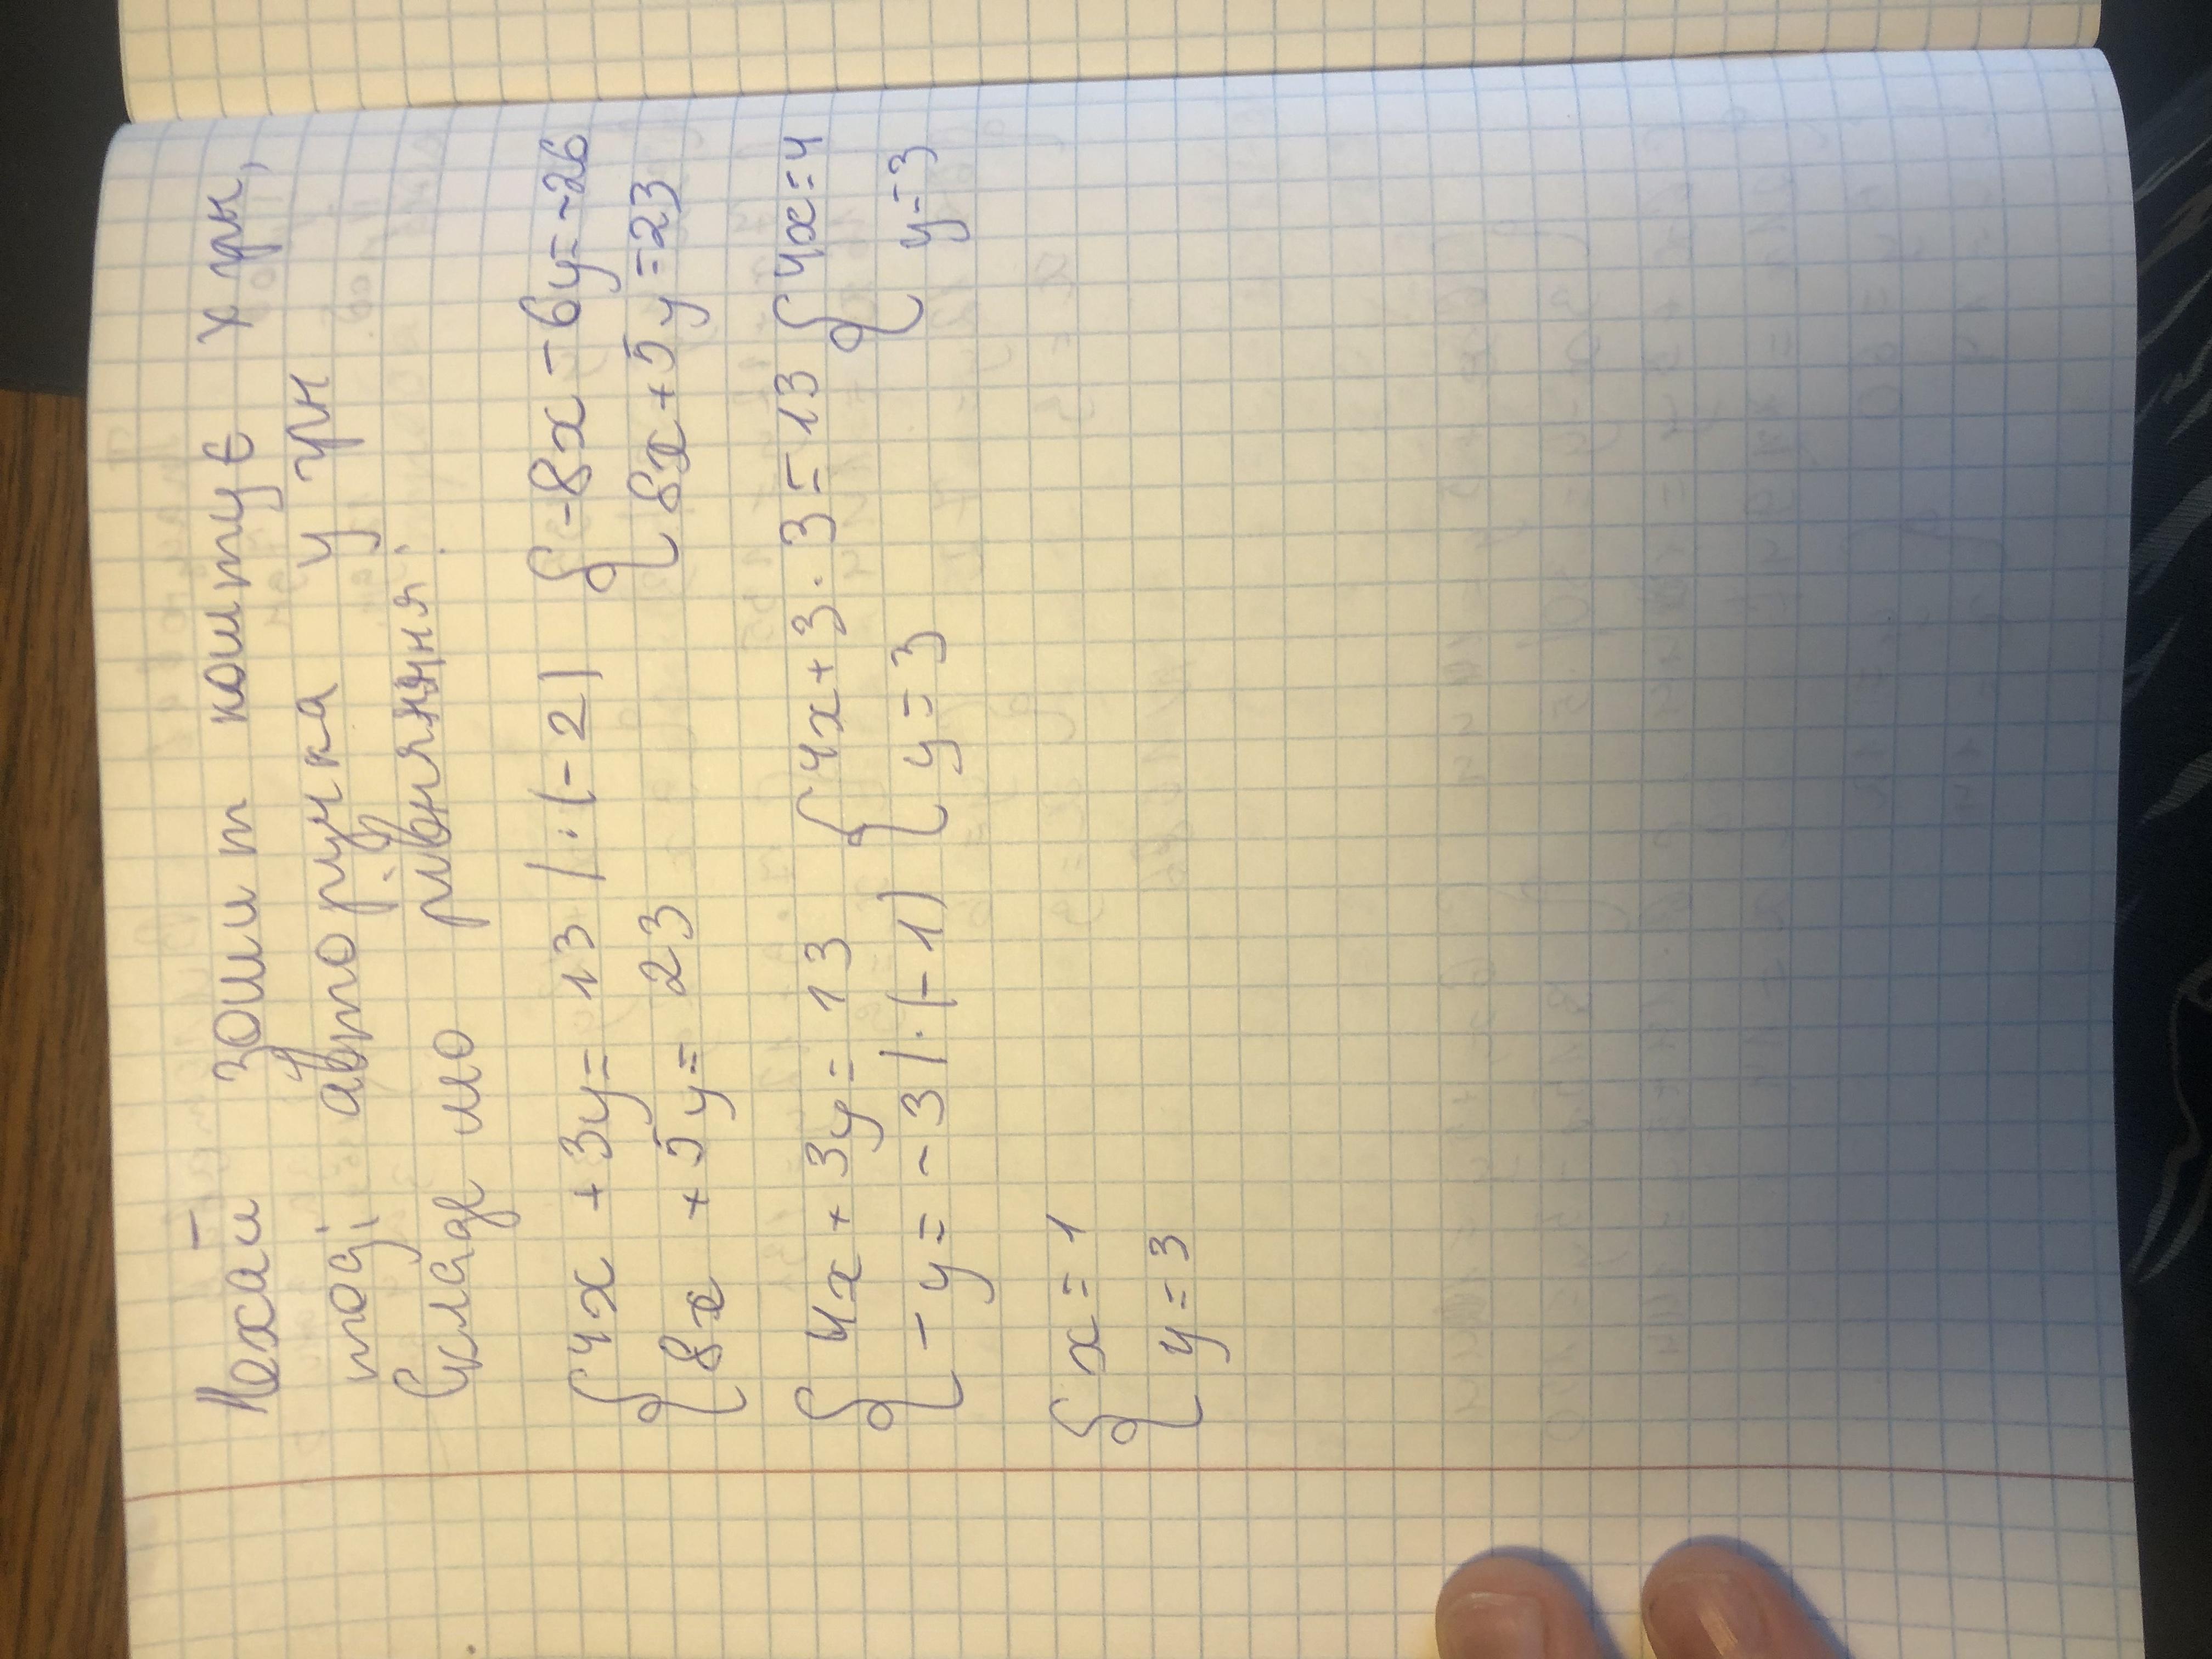 Нехай зошит коштує х грн,
тоді авторучка у грн
Складемо рівняння:
{ 4x + 3y = 13 | · (-2) { -8x - 6y = -26
{ 8x + 5y = 23 { 8x + 5y = 23
{ 4x + 3y = 13 { 4x + 3 · 3 = 13 { 4x = 4
{ - y = - 3 | · (-1) { y = 3 { y = 3
{ x = 1
{ y = 3